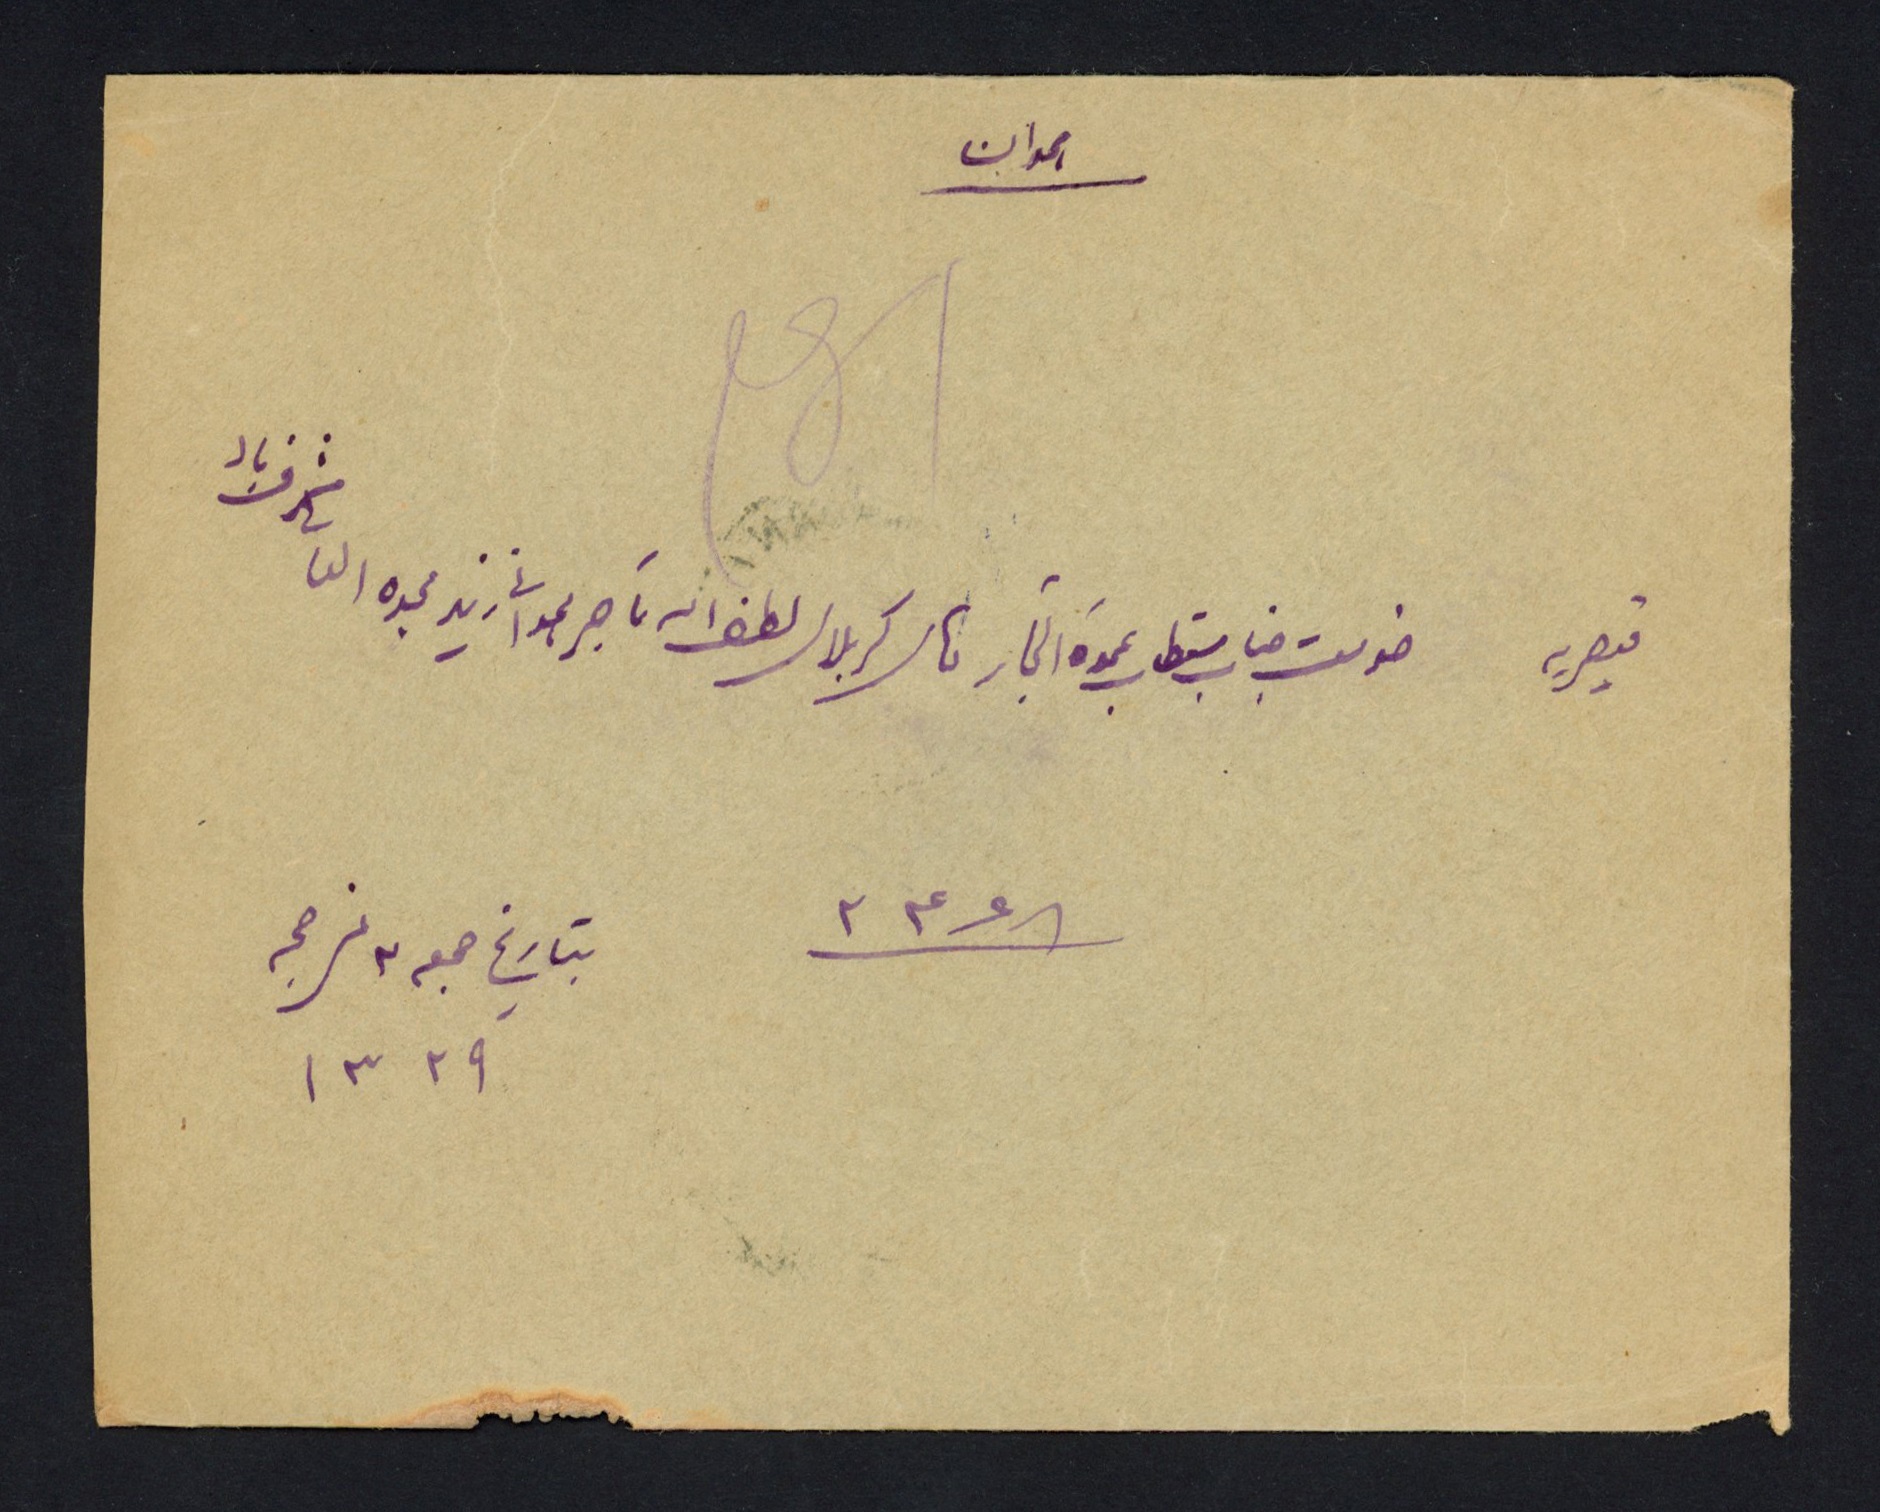 همدان
قیصریه خدمت جناب مستطاب عمدة التجار آقای کربلائی لطف الله تاجر همدانی زید مجده العالی
مشرف باد
۲۴۴۸
بتاریخ جمعه ۳ شهر حجه
۱۳۲۹